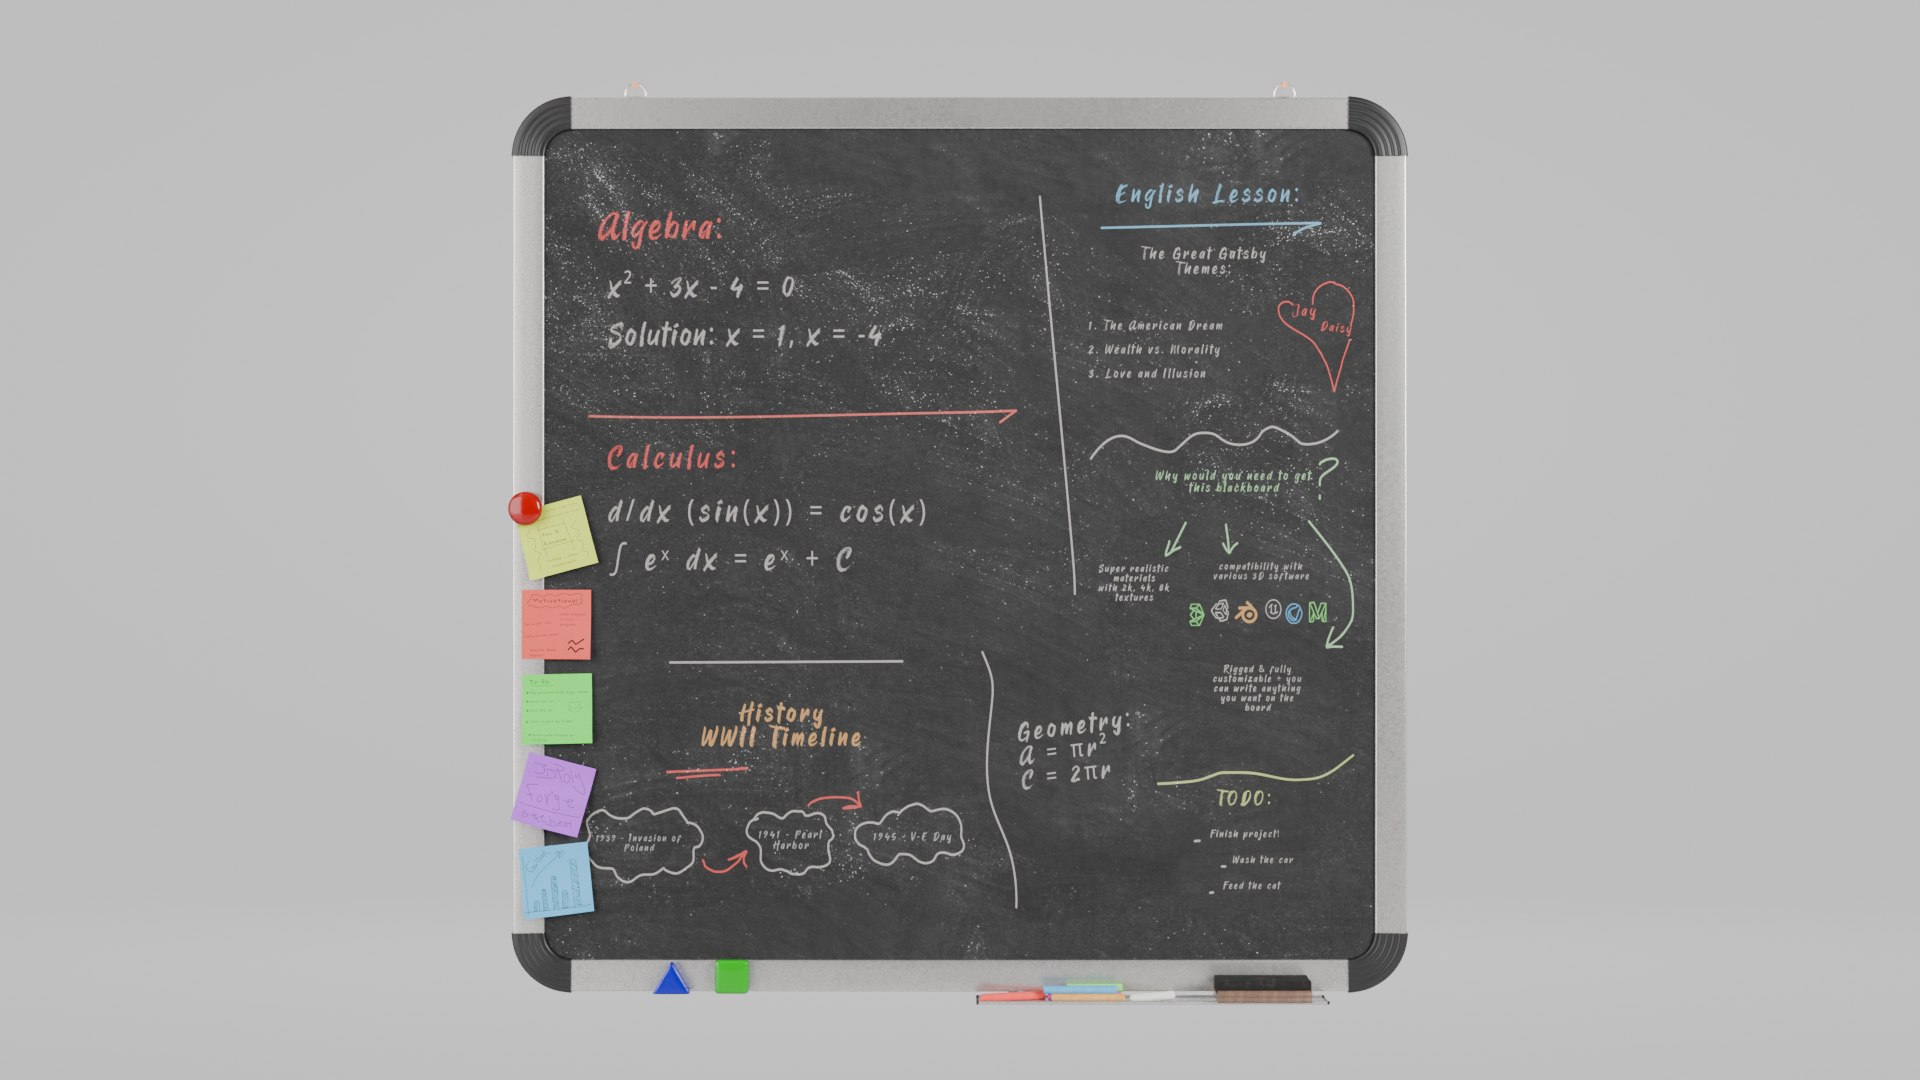 Algebra:
x² + 3x - 4 = 0
Solution: x = 1, x = -4
Calculus:
d/dx (sin(x)) = cos(x)
∫ eˣ dx = eˣ + C
History
WWII Timeline
1939 - Invasion of
Poland
1941 - Pearl
Harbor
1945 - V-E Day
Geometry:
A = πr²
C = 2πr
English Lesson:
The Great Gatsby
Themes:
1. The American Dream
2. Wealth vs. Morality
3. Love and Illusion
Jay
Daisy
Why would you need to get
this blackboard ?
Super realistic
materials
with 2k, 4k, 8k
textures
compatibility with
various 3D software
Rigged & fully
customizable - you
can write anything
you want on the
board
TODO:
- Finish project!
- Wash the car
- Feed the cat
Motivational
To-Do:
3DPoly
Forge
is the best
Goal